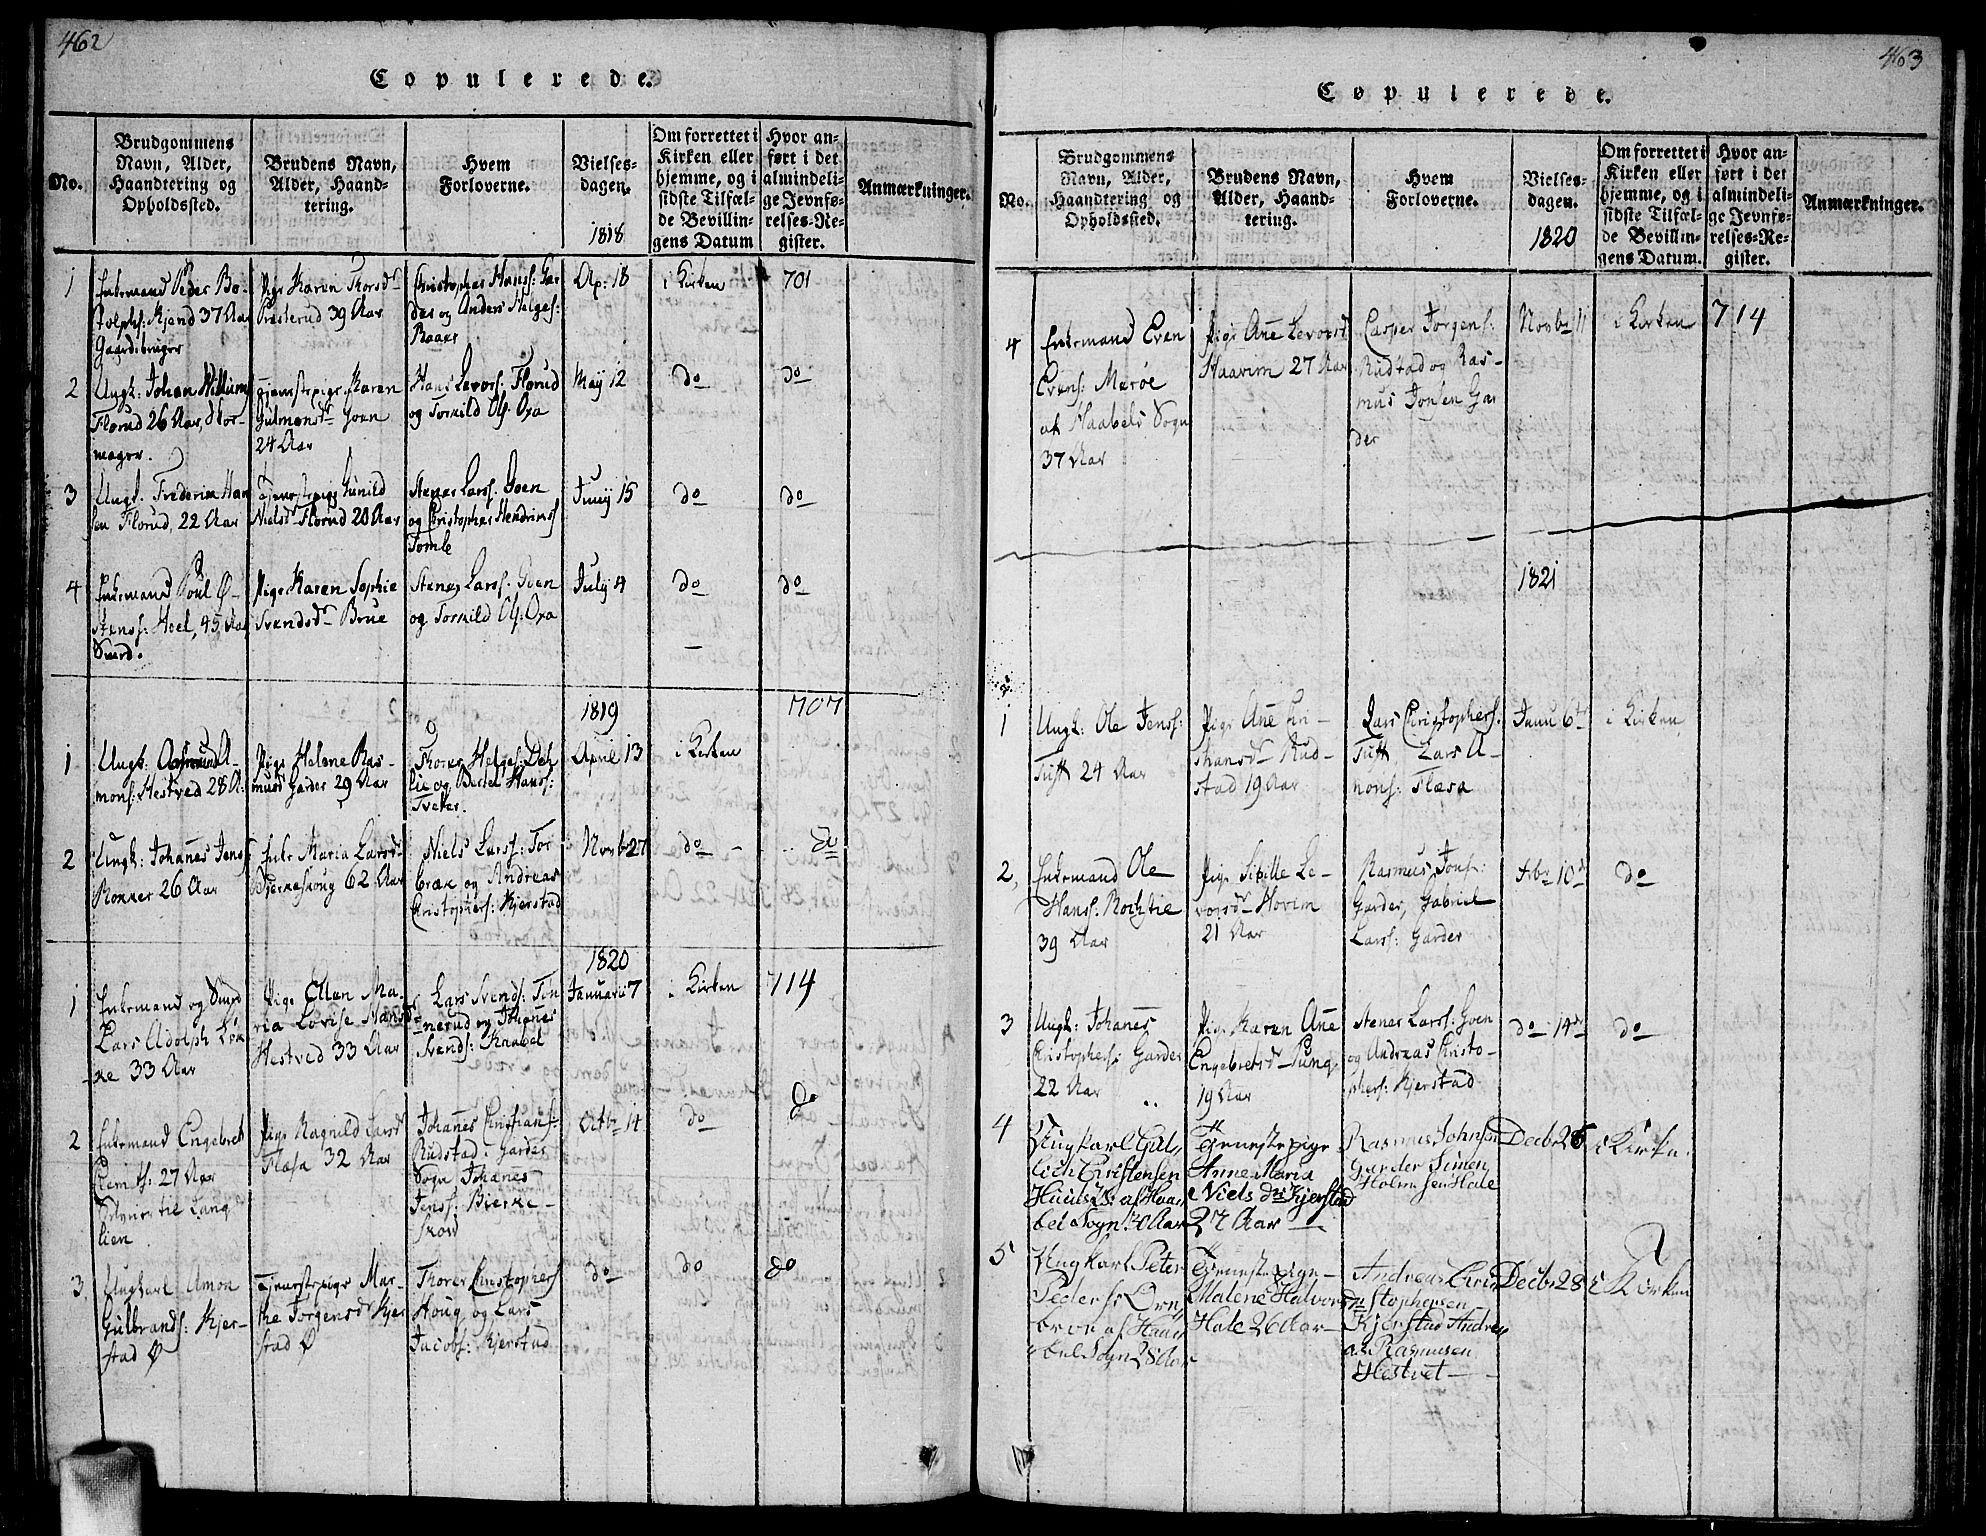 462
Copulerede.
No.
Brudgommens Navn, Alder, Haandtering og Opholdssted.
Brudens Navn, Alder, Haandtering.
Hvem Forloverne.
Vielsesdagen.
1818
Om forrettet i Kirken eller hjemme, og i sidste Tilfælde Bevillingens Datum
Hvor anført i det almindelige Jevnførelses-Register.
Anmærkninger.
1
Enkemand Peder Bo-
tolphs: Kjend 37 Aar
Gaardbruger
Pige Karen Thorsdr
Presterud 39 Aar
Christopher Hanss: Gar
der og Anders Helges:
Baax
Ap: 18
i Kirken
701
2
Ungk: Johan Willum
Florud 26 Aar, Skor-
mager.
Tjenestepige Karen
Gulmonsdr Goen
24 Aar
Hans Levors: Florud
og Tormild Ols: Oxa
May 12
do
do
3
Ungk: Frederik Han
sen Florud, 22 Aar
Tjenestepige Gunild
Nielsdr Florud 20 Aar
Stener Larss: Goen
og Christopher Hendrikss
Tomle
Juny 15
do
do
4
Enkemand Poul Ø-
stenss: Hoel, 45 Aar
Smed.
Pige Karen Sophie
Svendsdr Brue
Stener Larss: Goen
og Tormild Ols: Oxa
July 4
do
do
1819
707
1
Ungk: Asmund A-
mons: Hestved 28 A:
Pige Helene Ras-
musd Garder 29 Aar
Thorer Helges: Deh
lie og Bertel Hans:
Tveter.
April 13
i Kirken
2
Ungk: Johanes Jens:
Roxxer 26 Aar
Enke Maria Larsdr
Bjerkeskoug 62 Aar
Niels Larss: Tor
bræk og Andreas
Christophers: Kjerstad
Novbr 27
do
do
1820
1
Enkemand og Smed
Lars Adolph Lox
xe 33 Aar
Pige Ellen Ma-
ria Lovise Hansdr
Hestved 33 Aar
Lars Svends: Tin
nerud og Johanes
Svends: Knabel
Januarii 7
i Kirken
714
2
Enkemand Engebret
Clemits: 27 Aar
til Lang
lien
Pige Ragnild Larsd
Flæsa 32 Aar
Johanes Christians:
Rudstad i Garder
Sogn Johanes
Jenss: Bierke-
skow
Octbr 14
do
do
3.
Ungkarl Amon
Gulbrands: Kjer-
stad Ø
Tjenestepige Mar-
the Jørgensdr Kjer
stad Ø
Thorer Christophers
Houg og Lars
Jacobs: Kjerstad
do
do
do
463
Copulerede.
No.
Brudgommens Navn, Alder, Haandtering og Opholdssted.
Brudens Navn, Alder, Haandtering.
Hvem Forloverne.
Vielsesdagen.
1820
Om forrettet i Kirken eller hjemme, og i sidste Tilfælde Bevillingens Datum.
Hvor anført i det almindelige Jevnførelses-Register.
Anmærkninger.
4
Enkemand Even
Evens: Marøe
af Haabels Sogn
37 Aar
Pige Ane Levorsd
Haavim 27 Aar
Casper Jørgens:
Rudstad og Ras-
mus Jonsen Gar
der
Novbr 11
i Kirken
714
1821
1
Ungk: Ole Jens:
Tuft 24 Aar
Pige Ane
Hansdr Rud-
stad 19 Aar
Lars Christophers.
Tuft Lars A-
mons: Flæsa
Janu 6te
i Kirken
2,
Enkemand Ole
Hans: Rochlie
39 Aar
Pige Sibille Le-
vorsdr Hovim
21 Aar
Rasmus Jons:
Garder, Gabriel
Larss: Garder
10de
do
3
Ungk: Johanes
Christophers: Garder
22 Aar
Pige Karen Ane
Engebretsdr Pung
19 Aar
Stener Larss: Goen
og Andreas Christo-
phers: Kjerstad
do 14de
do
4
Ungkarl Gul-
lich Christensen
af Haa
bel Sogn 30 Aar
Tjenestepige
Anne Maria
Niels dtr Kjerstad
27 Aar
Rasmus Johnsen
Garder Simen
Holmsen Hole
Decbr 26
i Kirken.
5
Ungkarl Peter
Peders: Ørn
broe af Haa
bel Sogn 28 Aar
Tjenestepige
Malene Halvors dtr
Hole 26 Aar
Andreas Chri
stophersen
Kjerstad Andre
as Rasmusen
Hestvet
Decbr 28
i Kirken